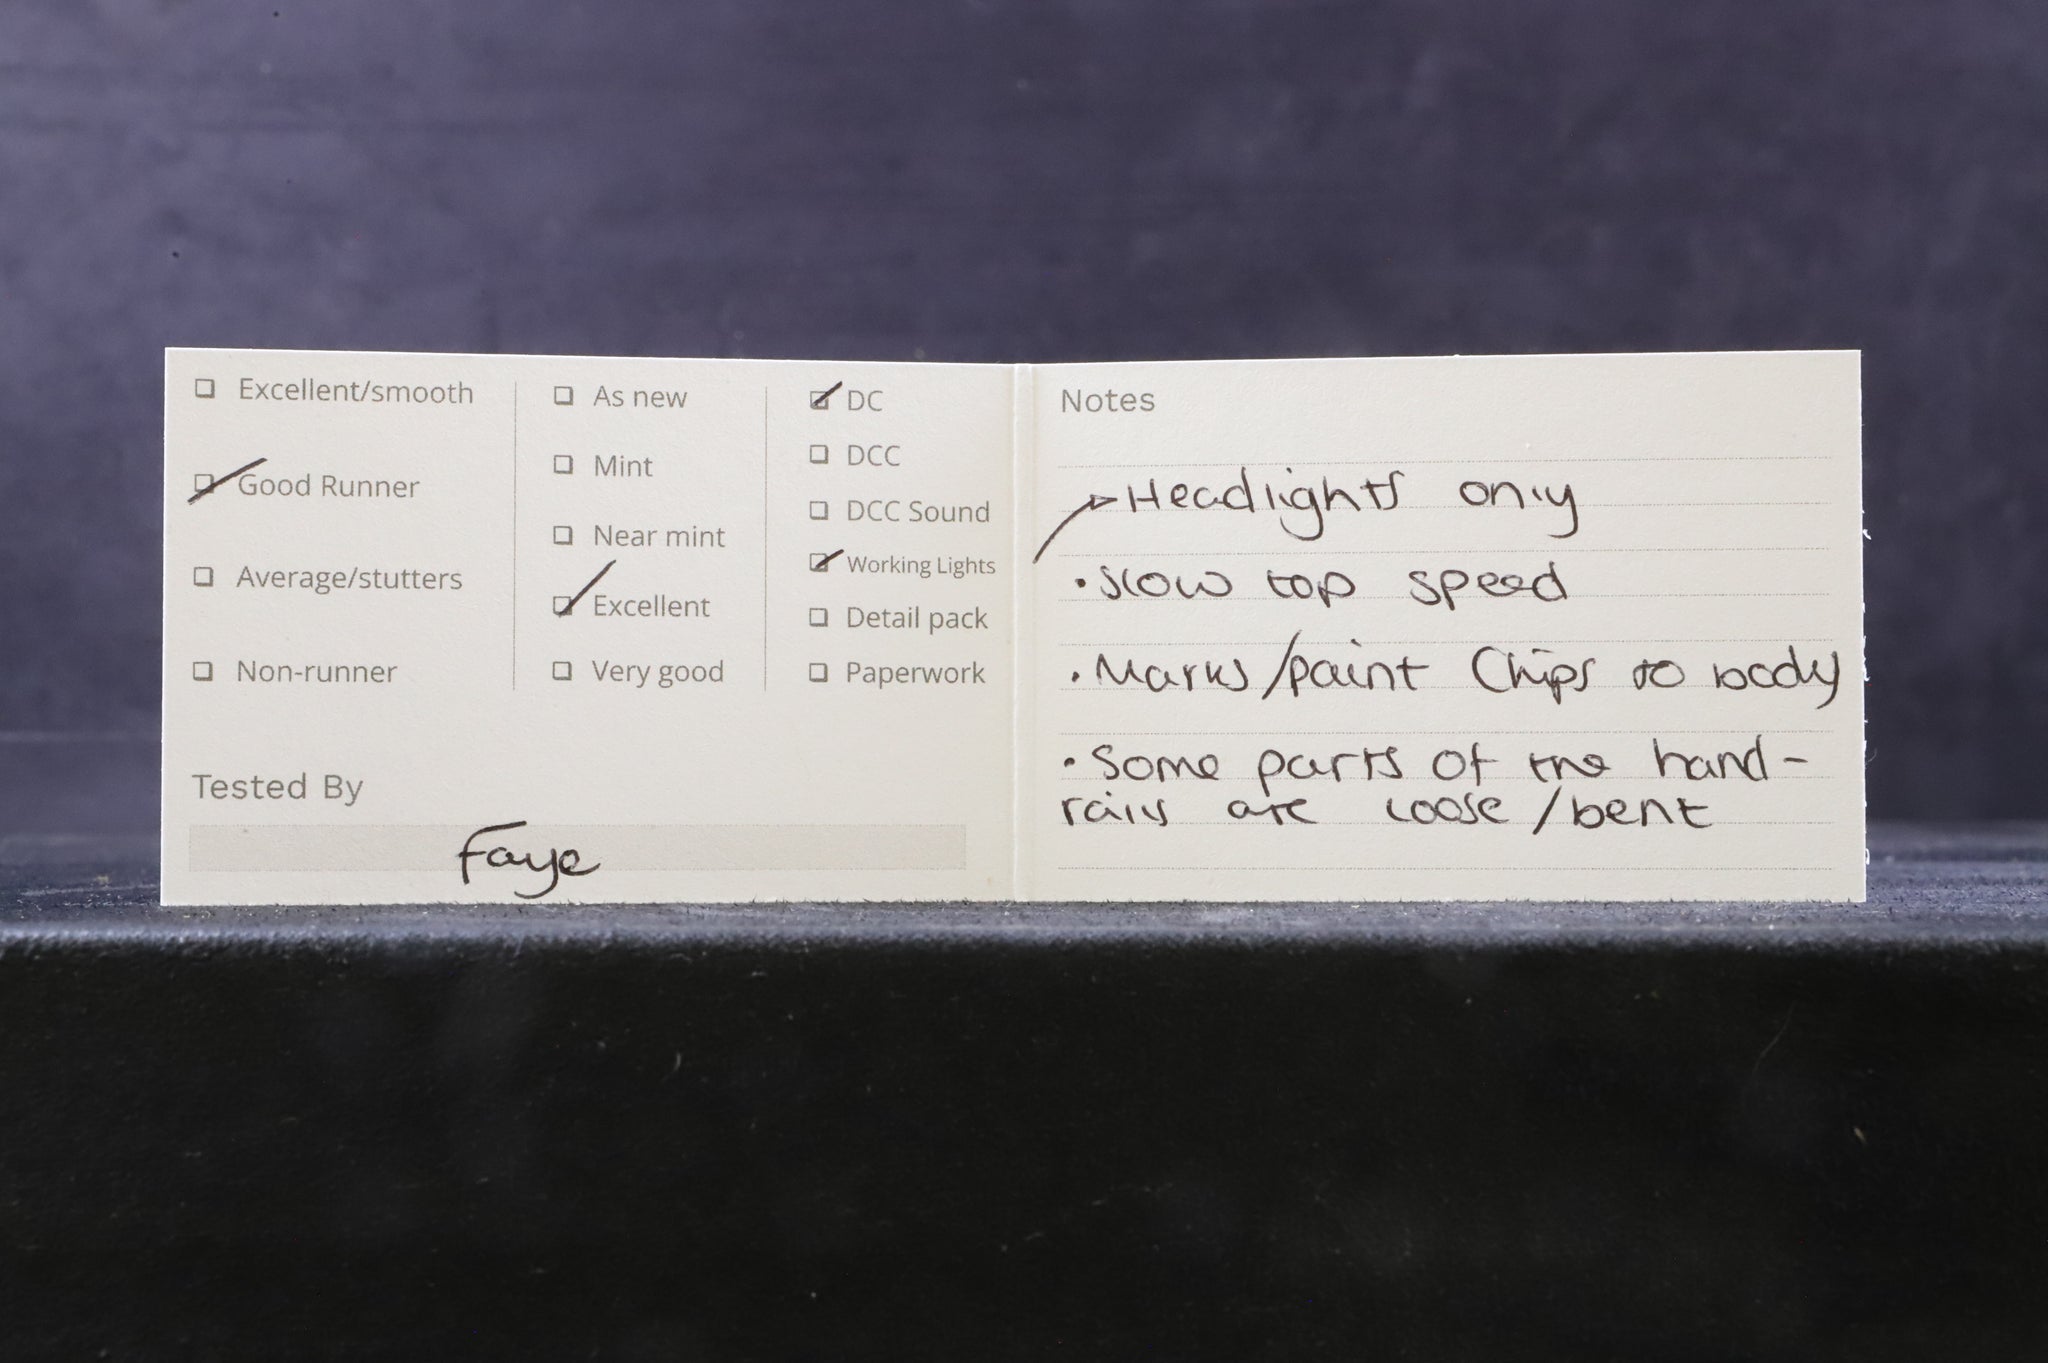 ☐ Excellent/smooth
☑ Good Runner
☐ Average/stutters
☐ Non-runner
☐ As new
☐ Mint
☐ Near mint
☑ Excellent
☐ Very good
☑ DC
☐ DCC
☐ DCC Sound
☑ Working Lights
☐ Detail pack
☐ Paperwork
Tested By
Faye
Notes
→ Headlights only
• Slow top speed
• Marks/paint Chips to body
• Some parts of the hand-
rails are loose/bent